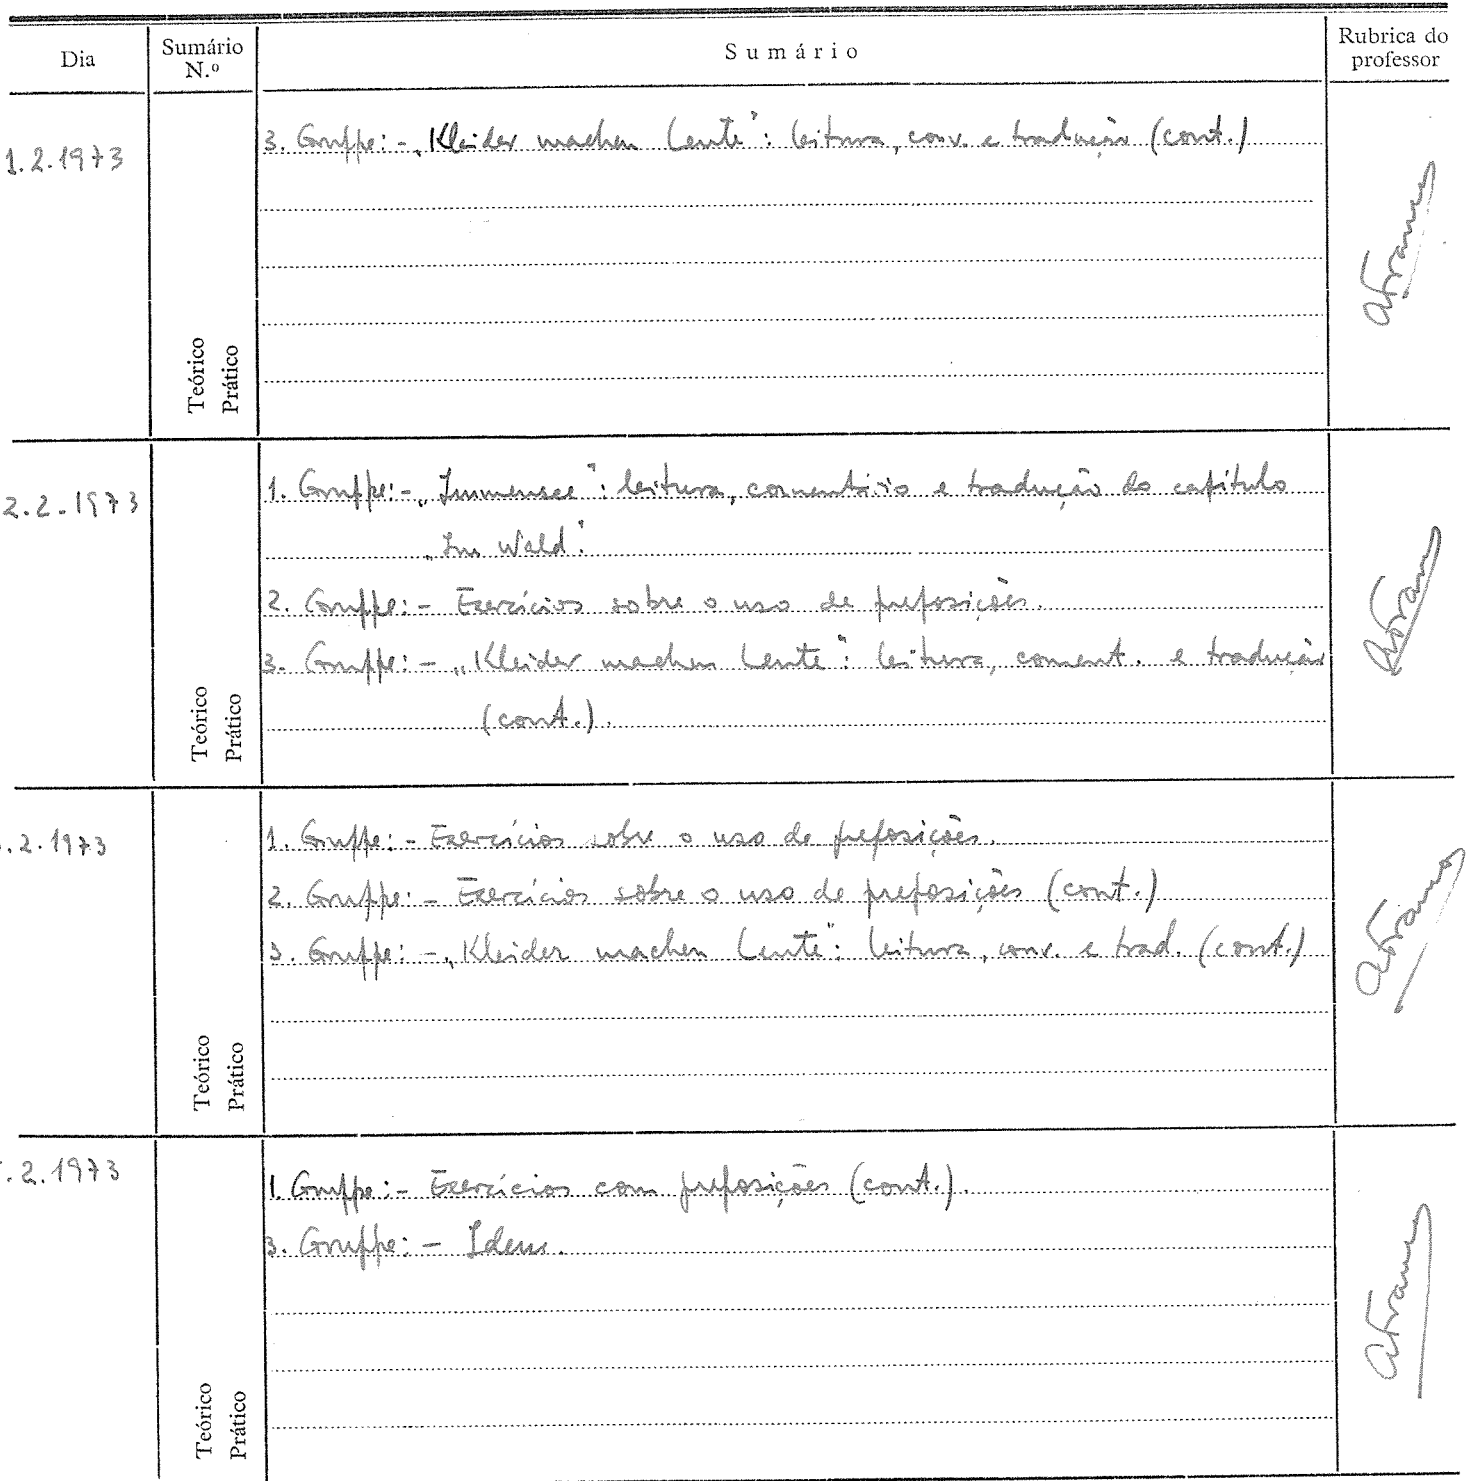 Dia Sumário N.º Sumário Rubrica do professor
1.2.1973
3. Gruppe: - „Kleider machen Leute": leitura, conv. e tradução (cont.)
Teórico
Prático
2.2.1973
1. Gruppe: - „Immensee": leitura, comentário e tradução do capítulo
„Im Wald".
2. Gruppe: - Exercícios sobre o uso de preposições.
3. Gruppe: - „Kleider machen Leute": leitura, coment. e tradução
(cont.).
Teórico
Prático
.2.1973
1. Gruppe: - Exercícios sobre o uso de preposições.
2. Gruppe: - Exercícios sobre o uso de preposições (cont.)
3. Gruppe: - „Kleider machen Leute": leitura, conv. e trad. (cont.)
Teórico
Prático
.2.1973
1. Gruppe: - Exercícios com preposições (cont.).
3. Gruppe: - Idem.
Teórico
Prático